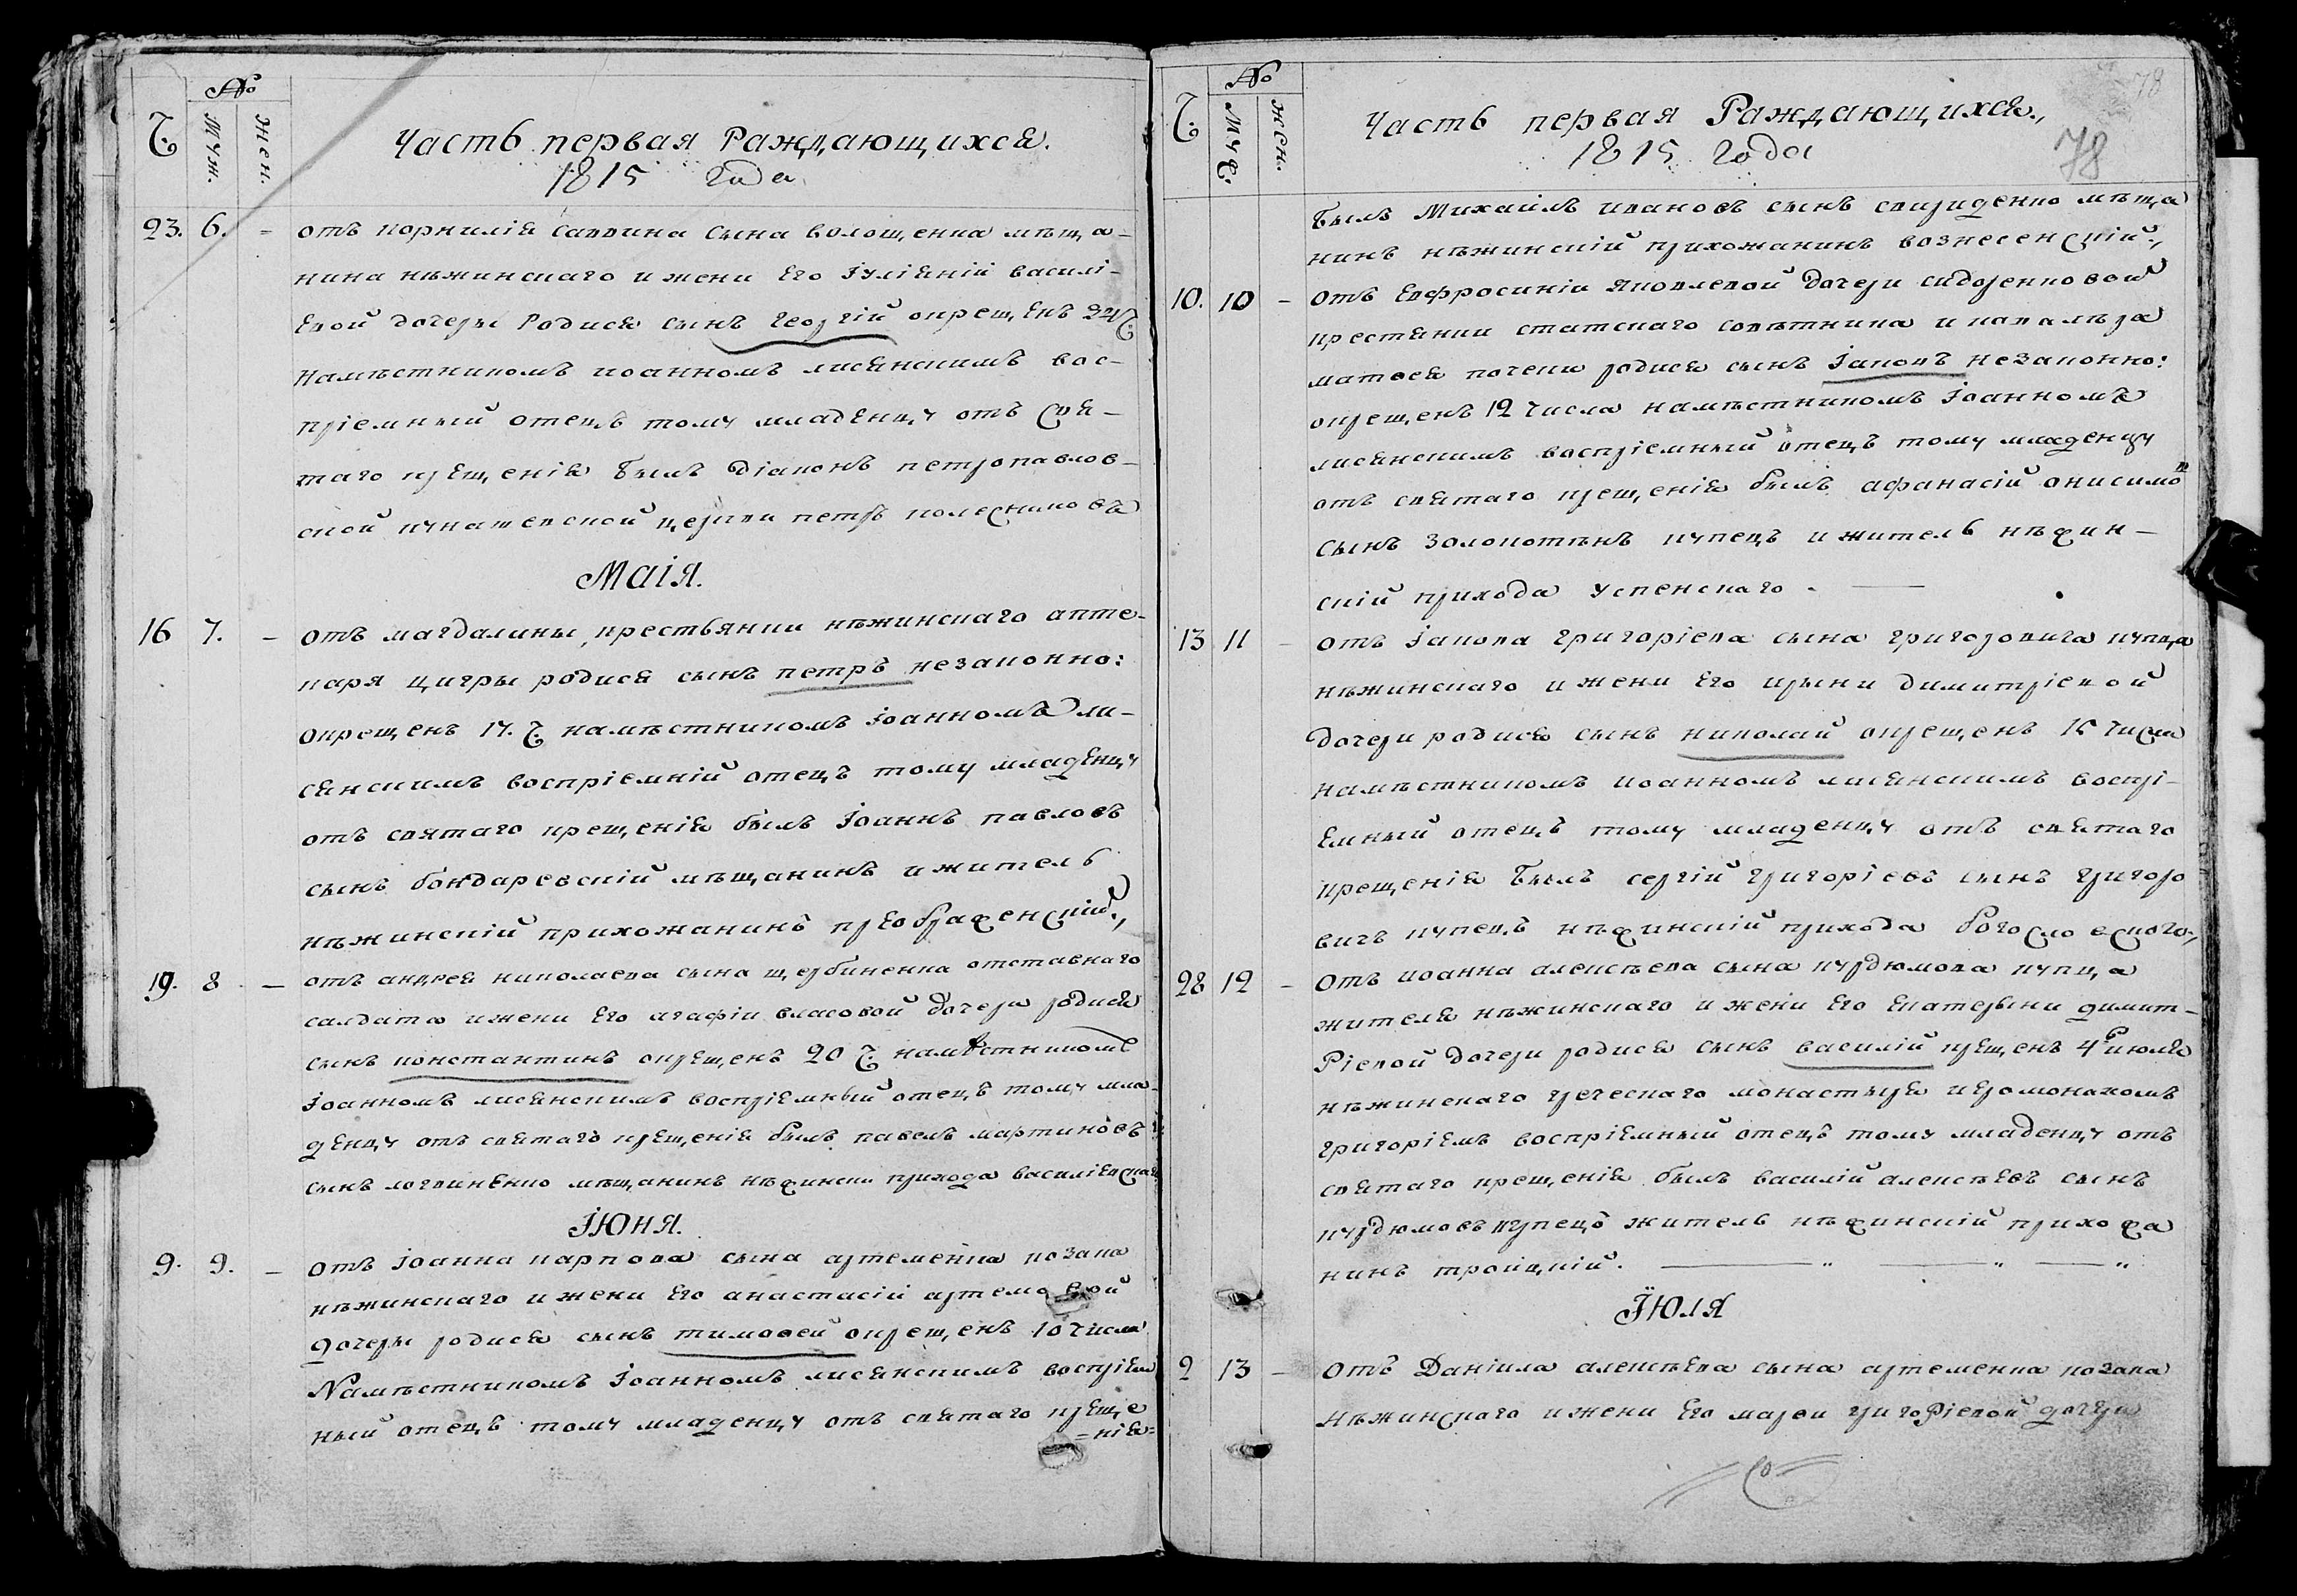 №
Ч.
Муж.
Жен.
Часть первая Раждающихся.
1815 года
23. 6. - отъ корнилія саввина сына волощенка мѣща-
нина нѣжинскаго и жени его Іуліяній василі-
евой дочеры родися сынъ георгій окрещенъ 24 Ч.
намѣстникомъ иоанномъ лисянскимъ вос-
пріемный отецъ тому младенцу отъ свя-
таго крещенія былъ діаконъ петропавлов-
ской кунашевской церкви петръ колесниковъ
Маія.
16 7. - отъ магдалины, крестьянки нѣжинскаго апте-
каря цигры родися сынъ петръ незаконно:
окрещенъ 17. Ч. намѣстникомъ Іоанномъ ли-
сянскимъ воспріемній отецъ тому младенцу
отъ святаго крещенія былъ Іоаннъ павловъ
сынъ бондаревскій мѣщанинъ и житель
нѣжинскій прихожанинъ преображенскій.,
19. 8. - отъ андрея николаева сына щербиненка отставнаго
салдата и жени его агафіи власовой дочери родися
сынъ константинъ окрещенъ 20 Ч. намѣстникомъ
Іоанномъ лисянскимъ воспріемный отецъ тому мла-
денцу отъ святаго крещенія былъ павелъ мартиновъ
сынъ логвиненко мѣщанинъ нѣжинскій прихода василіевскаго
Іюня.
9. 9. - отъ Іоанна карпова сына артеменка козака
нѣжинскаго и жени его анастасій артемовой
дочеры родися сынъ тимофей окрещенъ 10 числа
Намѣстникомъ Іоанномъ лисянскимъ воспріем
ный отецъ тому младенцу отъ святаго креще
=нія=
№
Ч.
Муж.
жен.
78
Часть первая Раждающихся.,
1815 года
78
былъ Михаилъ ивановъ сынъ свириденко мѣща
нинъ нѣжинскій прихожанинъ вознесенскій.,
10. 10 - отъ евфросиніи яковлевой дочери сидоренковой
крестянки статскаго совѣтника и кавалѣра
матвея почеки родися сынъ Іаковъ незаконно:
окрещенъ 12 числа намѣстникомъ Іоанномъ
лисянскимъ воспріемный отецъ тому младенцу
отъ святаго крещенія былъ афанасій онисимо
сынъ золокотѣнъ купецъ и житель нѣжин-
скій прихода успенскаго.
13 11 - отъ Іакова григоріева сына григоровича купца
нѣжинскаго и жени его ирыни димитріевой
дочери родися сынъ николай окрещенъ 15 числа
намѣстникомъ иоанномъ лисянскимъ воспрі-
емный отецъ тому младенцу отъ святаго
крещенія былъ сергій григоріевъ сынъ григоро
вичъ купецъ нѣжинскій прихода богословскаго.,
28 12 - отъ иоанна алексѣева сына курдюмова купца
жителя нѣжинскаго и жени его екатерыни димит-
ріевой дочери родися сынъ василій крещенъ 4 го июля
нѣжинскаго греческаго монастыря иеромонахомъ
григоріемъ воспріемный отецъ тому младенцу отъ
святаго крещенія былъ василій алексѣевъ сынъ
курдюмовъ купецъ житель нѣжинскій прихожа
нинъ тройцкій.
Іюля
2 13 - отъ Даніила алексѣева сына артеменка козака
нѣжинскаго и жени его марфи григоріевой дочери